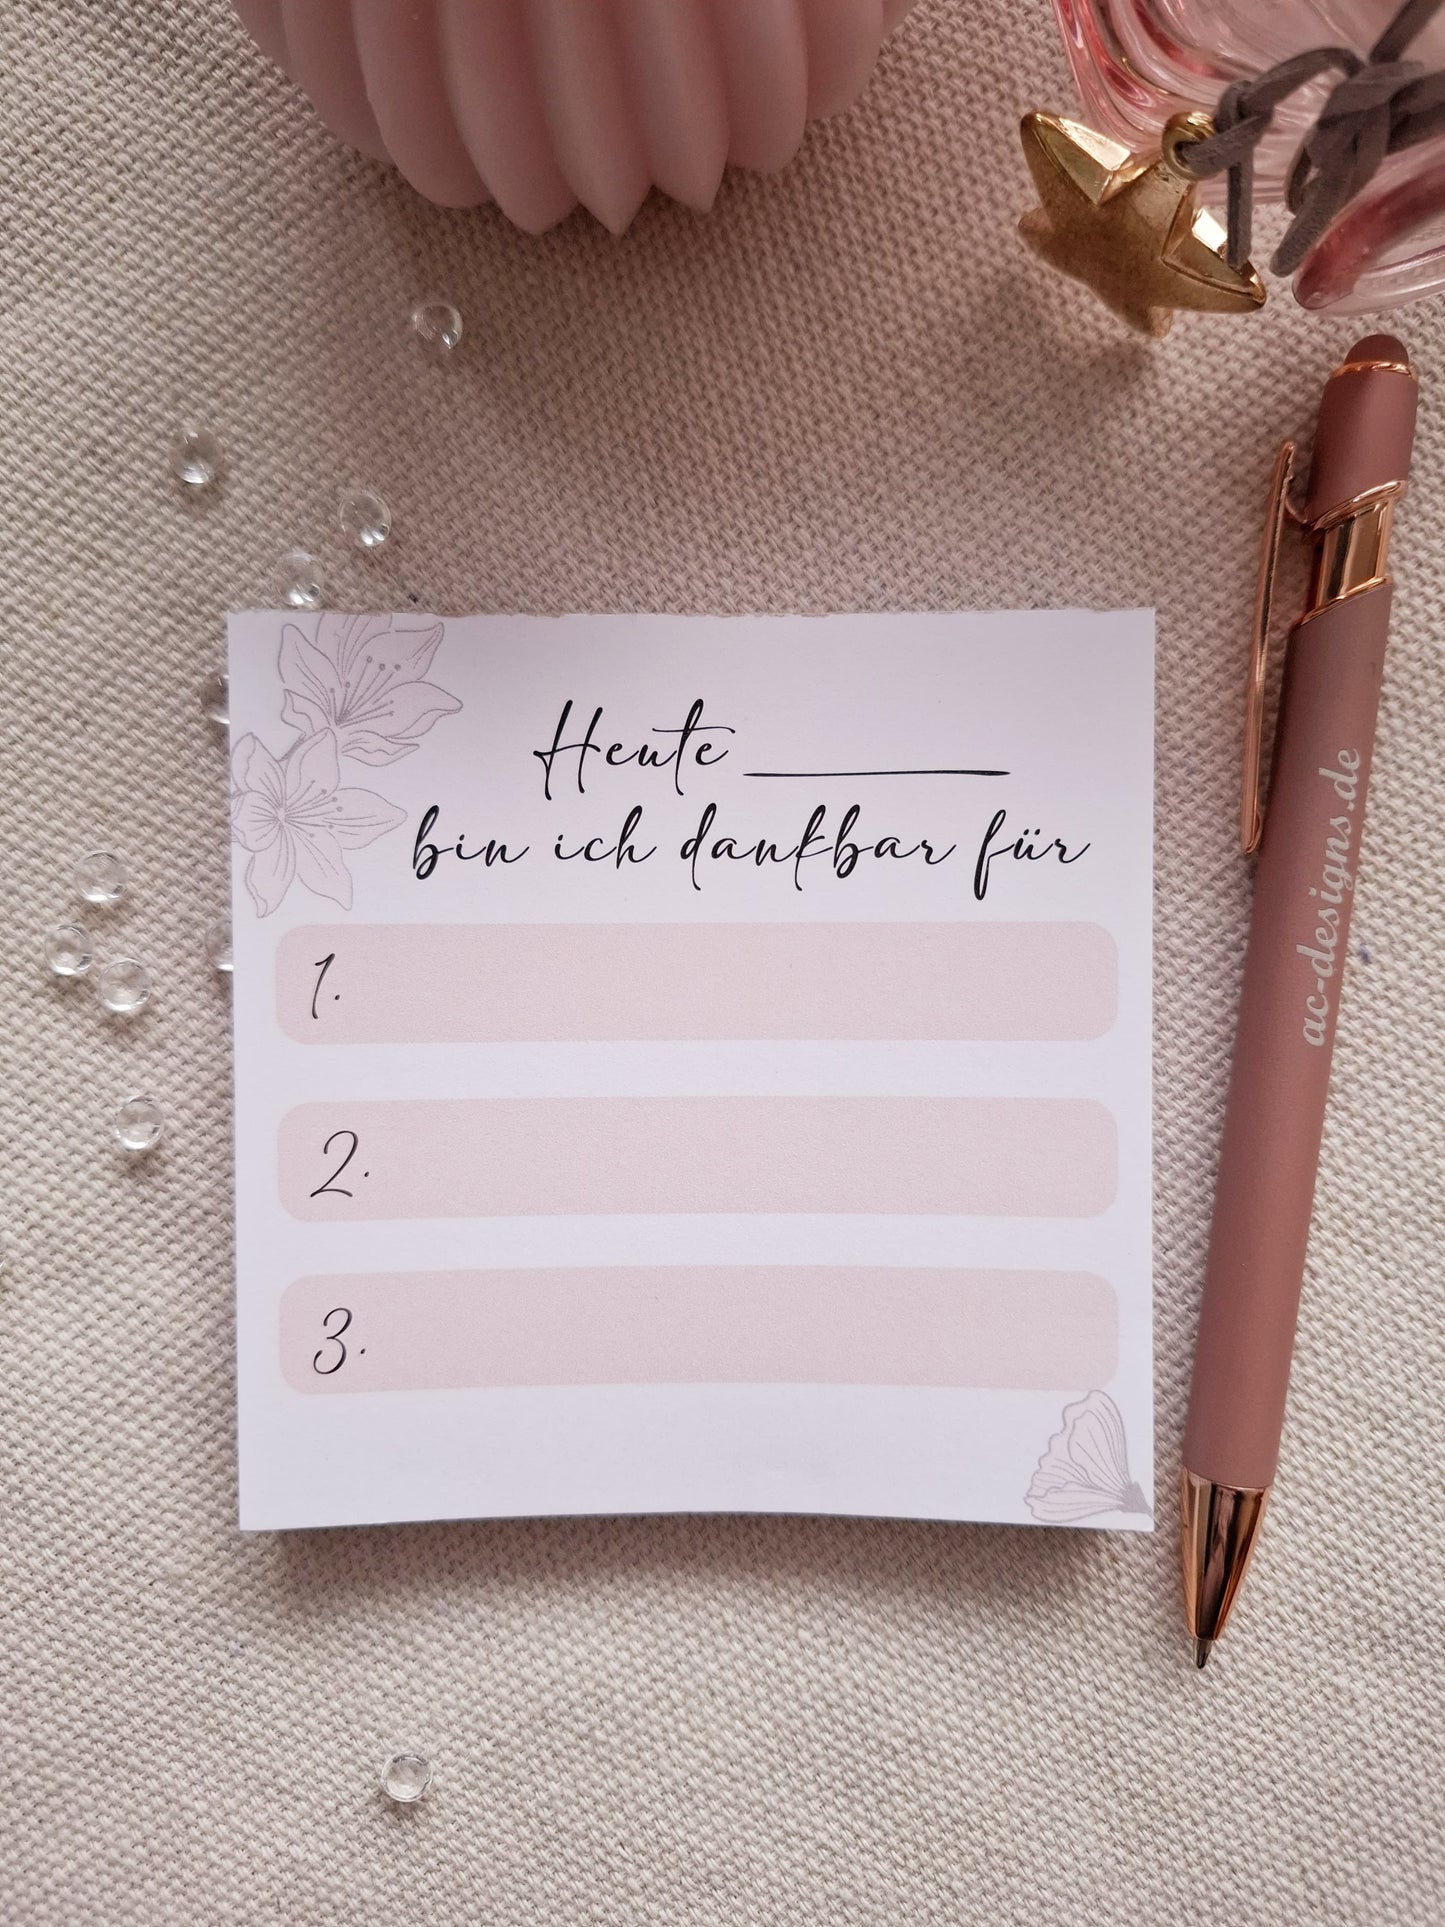 Heute ________
bin ich dankbar für
1.
2.
3.
ac-designs.de